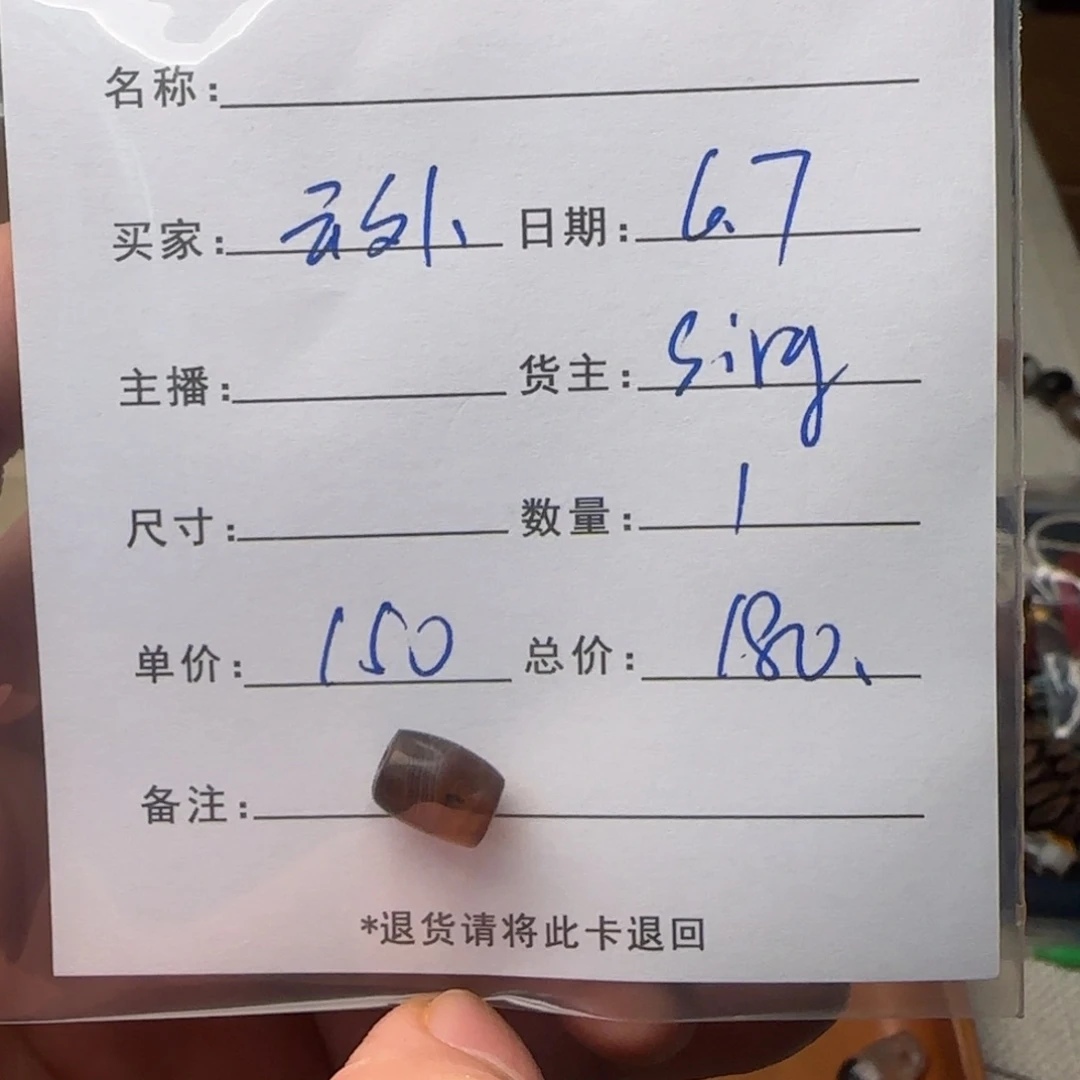 名称:
买家: 日期: 6.7
主播: 货主:
尺寸: 数量: 1
单价: 150 总价: 180、
备注:
*退货请将此卡退回